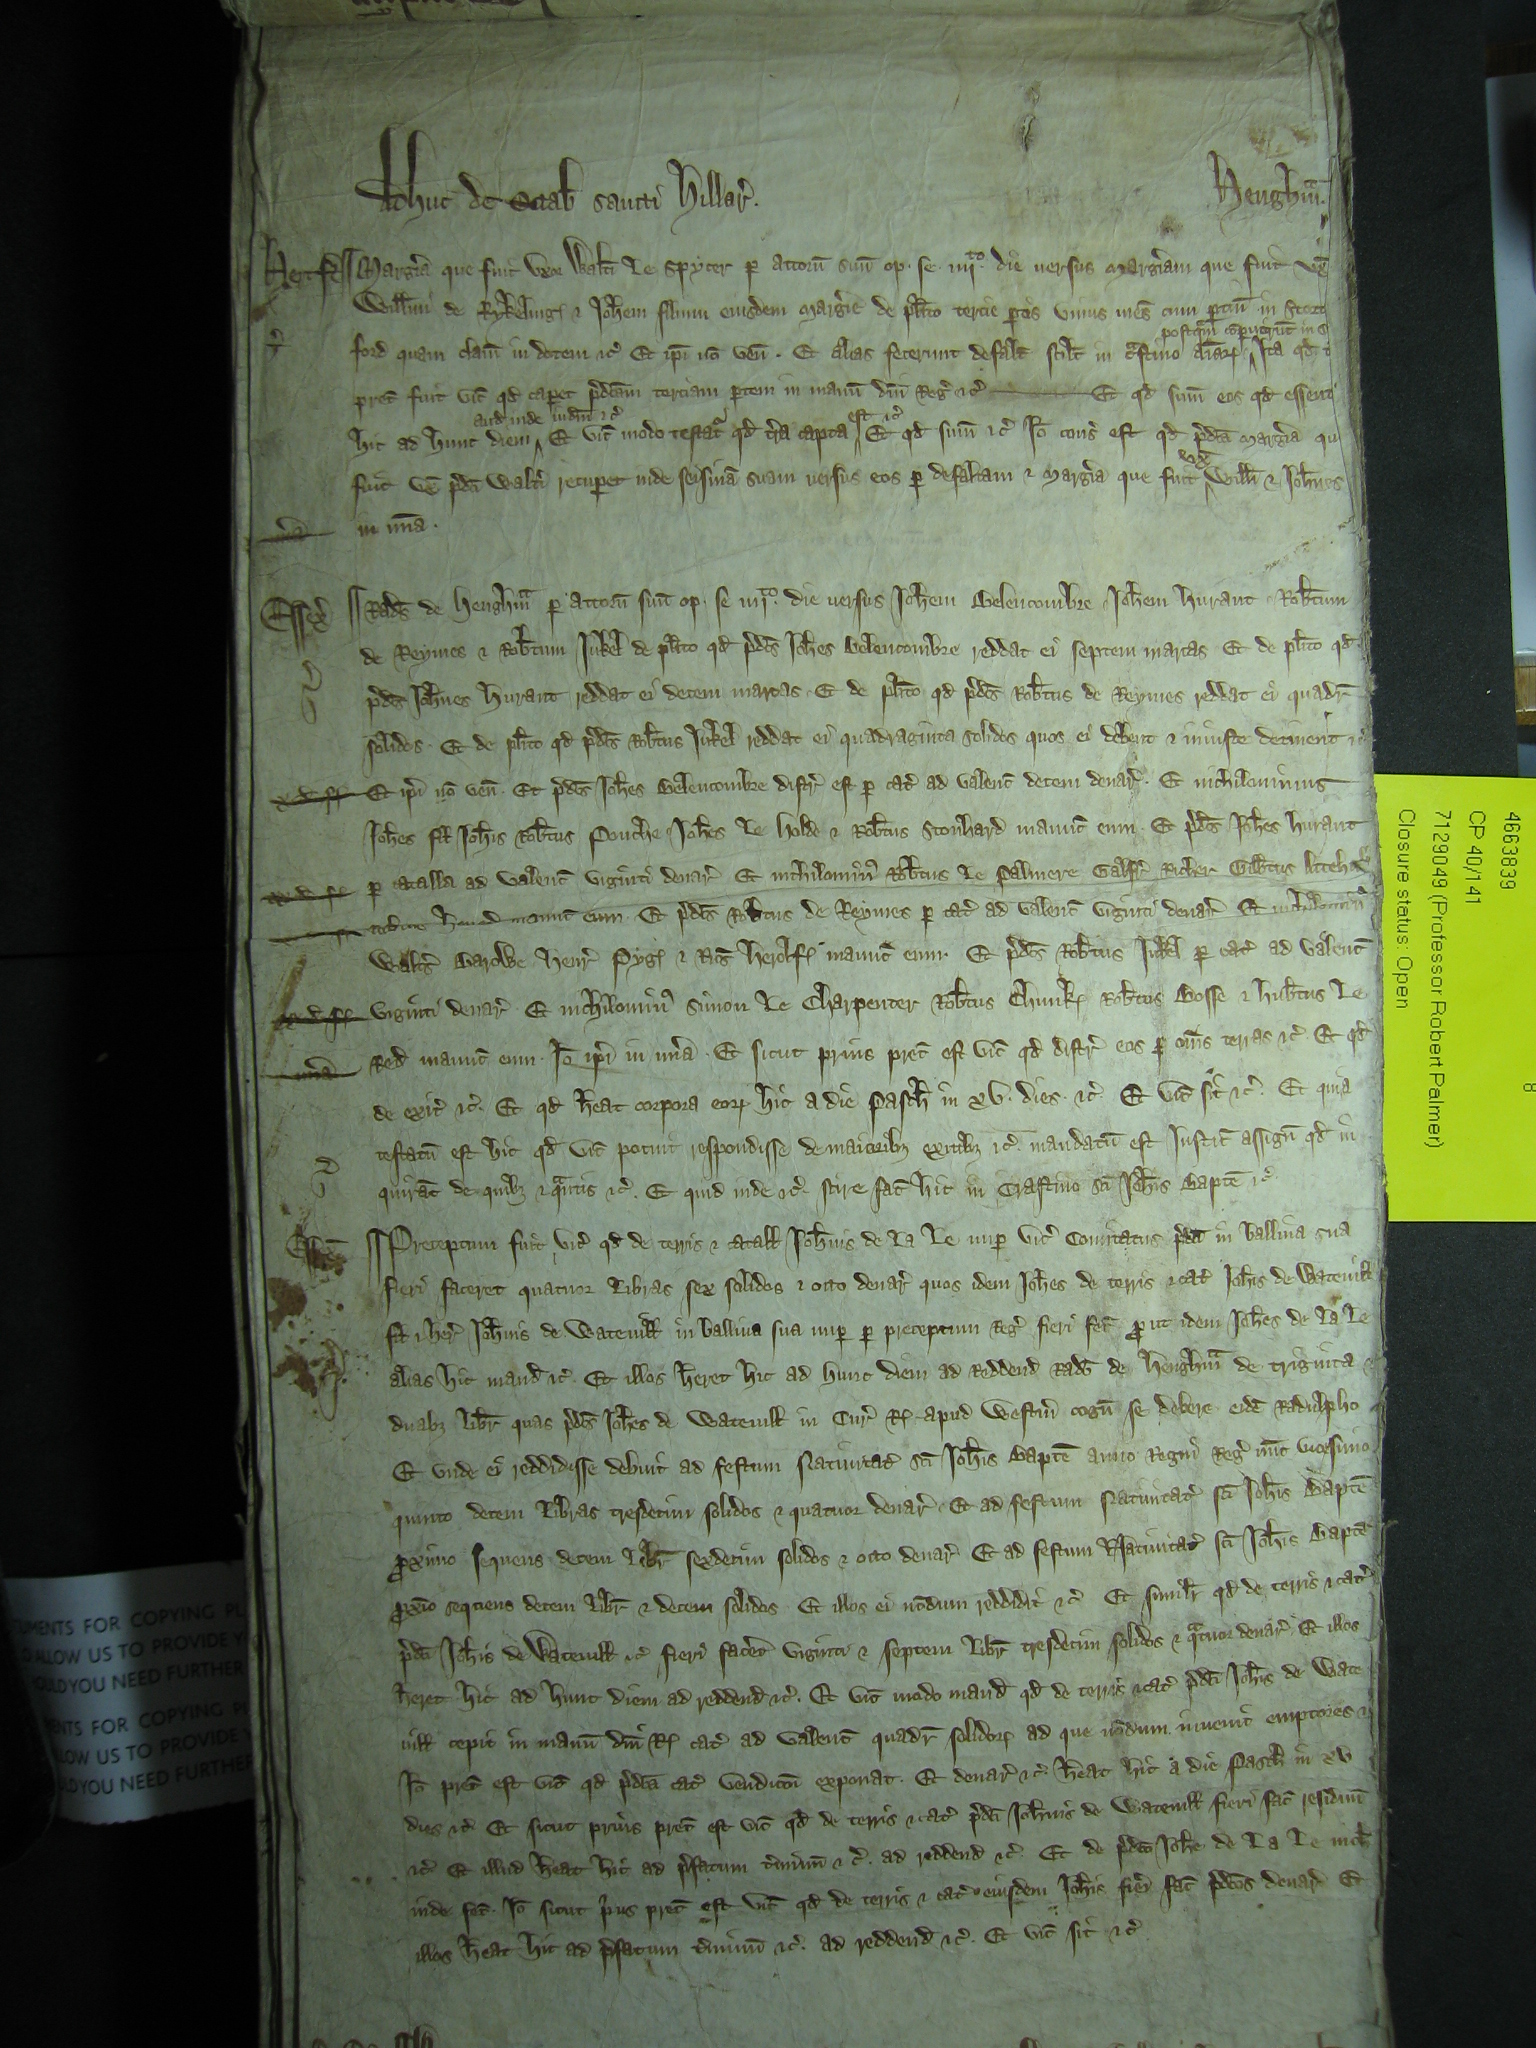 Adhuc de Octab sancti Hillar̃.
Henghm̃.
Hertf̃
Margĩa que fuit vxor Walt̃i le Spycer p̱ attorñ suũ op. se. iiijto. die uersus Margĩam que fuit vx̃
Willm̃i de Rykeling̃ & Joh̃em filium eiusdem Margĩe de plĩto tercie p̱tis vnius mes̃ cum p̱tiñ in Stort
postq̃m comparuerũt in
ford quam clam̃ in dotem &c̃ Et ip̃i nõ veñ. Et alias fecerunt defalt̃ scilt̃ in c̃stino Ãiaꝝ Ita qd̃
prec̃ fuit vic̃ qd̃ cap̱et p̃dc̃am terciam p̱tem in manũ dñi Reg̃ &c̃ Et qd̃ sum̃ eos qd̃ essent
aud inde iudm̃ &c̃
est &c̃
hic ad hunc diem Et vic̃ modo testat̃ qd̃ t̃ra capta Et qd̃ sum̃ &c̃ Iõ cons̃ est qd̃ p̃dc̃a Margĩa qu
vx̃
fuit vx̃ p̃dc̃i Walt̃i recup̱et inde seisinã suam uersus eos p̱ defaltam & Margĩa que fuit Willĩ & Joh̃nes
in mĩa.
Essex̃
Rad̃s de Henghm̃ p̱ attorñ suũ op. se iiijto. die uersus Joh̃em Belencombre Joh̃em Hurant Rob̃tum
de Reymes & Rob̃tum Jukel de plĩto qd̃ p̃dc̃s Joh̃es Belencombre reddat ei septem marcas Et de plĩto qd̃
p̃dc̃s Joh̃nes Hurant reddat ei decem marcas. Et de plĩto qd̃ p̃dc̃s Rob̃tus de Reymes reddat ei quadr̃
solidos. Et de plĩto qd̃ p̃dc̃s Rob̃tus Jukel reddat ei quadraginta solidos quos ei debent & iniuste detinent &c̃
Et ip̃i nõ veñ. Et p̃dc̃s Joh̃es Belencombre distr̃ est p̱ cat̃ ad valenc̃ decem denar̃. Et nichilominus
Joh̃es fil̃ Joh̃is Rob̃tus Pouche Joh̃es le Holde & Rob̃tus Stonhard manuc̃ eum. Et p̃dc̃s Joh̃es Hurant
p̱ catalla ad valenc̃ viginti denar̃ Et nichilomiñ Rob̃tus le Palmere Galfr̃ Richer Gilb̃tus
manuc̃ eum. Et p̃dc̃s Rob̃tus de Reymes p̱ cat̃ ad valenc̃ viginti denar̃ Et nichilomiñ
Walt̃s Barowe Henr̃ Pyg̃ & Ric̃s Herolf̃ manuc̃ eum. Et p̃dc̃s Rob̃tus Jukel p̱ cat̃ ad valenc̃
viginti denar̃ Et nichilomiñ Simon le Charpenter Rob̃tus Chunk̃ Rob̃tus Bosse & Hub̃tus le
Red manuc̃ eum. Iõ ip̃i in mĩa. Et sicut prius prec̃ est vic̃ qd̃ distr̃ eos p̱ om̃s terras &c̃ Et qd̃
mĩa
de exit̃ &c̃. Et qd̃ h̃eat corpora eoꝝ hic a die Pasch̃ in xv. dies &c̃. Et vic̃ sit &c̃. Et quia
testatũ est hic qd̃ vic̃ potuit respondisse de maioribz exitibz &c̃. mandatũ est Justic̃ assigñ qd̃ in
quirãt de quibz & q̃ntis &c̃. Et quid inde &c̃ scire fac̃ hic in Crastino sc̃i Joh̃is Bapt̃e &c̃
Essex̃
Preceptum fuit vic̃ qd̃ de terris & catall̃ Joh̃nis de la Le nup̱ vic̃ Comitatus p̃dc̃i in balliua sua
fieri faceret quatuor libras sex solidos & octo denar̃ quos idem Joh̃es de terris & cat̃ Joh̃is de Wateuill̃
fil̃ & her̃ Joh̃nis de Wateuill̃ in balliua sua nup̱ p̱ preceptum Reg̃ fieri fec̃ prout idem Joh̃es de la Le
alias hic mand̃ &c̃. Et illos h̃eret hic ad hunc diem ad reddend̃ Rad̃o de Henghm̃ de triginta &
duabz libr̃ quas p̃dc̃s Joh̃es de Wateuill̃ in Cur̃ R̃ apud Westm̃ cogñ se debere eid̃ Radulpho
Et vnde ei reddidisse debuit ad festum Natiuitat̃ sc̃i Joh̃is Bapt̃e anno Regni Reg̃ nũc vicesimo
quinto decem libras tresdecim solidos & quatuor denar̃. Et ad festum Natiuitat̃ sc̃i Joh̃is Bapt̃e
proximo sequens decem libr̃ sexdecim solidos & octo denar̃ Et ad festum Natiuitat̃ sc̃i Joh̃is Bapt̃e
proxĩo sequens decem libr̃ & decem solidos. Et illos ei nõdum reddidit &c̃ Et similr̃ qd̃ de terris & cat̃
p̃dc̃i Joh̃is de Wateuill̃ &c̃ fieri facẽt viginti & septem libr̃ tresdecim solidos & q̃tuor denar̃. Et illos
h̃eret hic ad hunc diem ad reddend̃ &c̃. Et vic̃ modo mand̃ qd̃ de terris & cat̃ p̃dc̃i Joh̃is de Wate
uill̃ cepit in manũ dñi R̃ cat̃ ad valenc̃ quadr̃ solidoꝝ ad que nõdum inuenit emptores &c̃
Iõ prec̃ est vic̃ qd̃ p̃dc̃a cat̃ vendicõi exponat. Et denar̃ &c̃. h̃eat hic a die Pasch̃ in xv
dies &c̃ Et sicut prius prec̃ est vic̃ qd̃ de terris & cat̃ p̃dc̃i Joh̃nis de Wateuill̃ fieri fac̃ residuũ
&c̃ Et illud h̃eat hic ad p̃fatum t̃minũ &c̃. ad reddend̃ &c̃ Et de p̃dc̃o Joh̃e de la Le nich̃
inde fec̃. Iõ sicut p̃us prec̃ est vic̃ qd̃ de terris & cat̃ eiusdem Joh̃is fieri fac̃ p̃dc̃os denar̃ Et
illos h̃eat hic ad p̃fatum t̃minũ &c̃. ad reddend̃ &c̃. Et vic̃ sit &c̃
8
4663839
CP 40/141
7129049 (Professor Robert Palmer)
Closure status: Open
UMENTS FOR COPYING PL
ALLOW US TO PROVIDE Y
OULD YOU NEED FURTHER
MENTS FOR COPYING PL
LOW US TO PROVIDE Y
ULD YOU NEED FURTHER